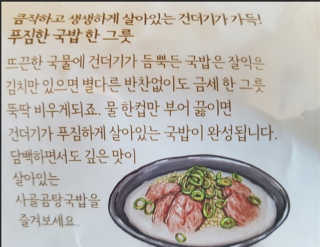 큼직하고 생생하게 살아있는 건더기가 가득!
푸짐한 국밥 한 그릇
뜨끈한 국물에 건더기가 듬뿍든 국밥은 잘익은
김치만 있으면 별다른 반찬없이도 금세 한 그릇
뚝딱 비우게되죠. 물 한컵만 부어 끓이면
건더기가 푸짐하게 살아있는 국밥이 완성됩니다.
담백하면서도 깊은 맛이
살아있는
사골곰탕국밥을
즐겨보세요.